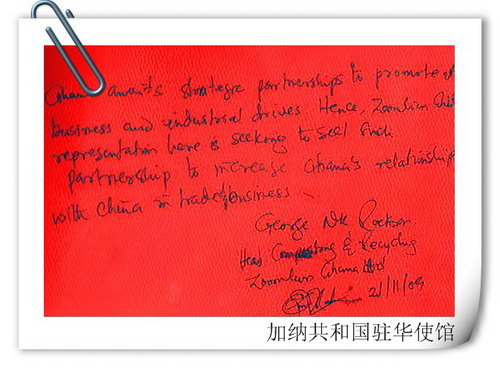 Ghana awaits strategic partnerships to promote
business and industrial drives. Hence, Zoomlion
representation here is seeking to seal such
partnership to increase Ghana's relationship
with China in trade & business
George Nik
Head Composting & Recycling
Zoomlion Ghana Ltd
21/11/09
加纳共和国驻华使馆